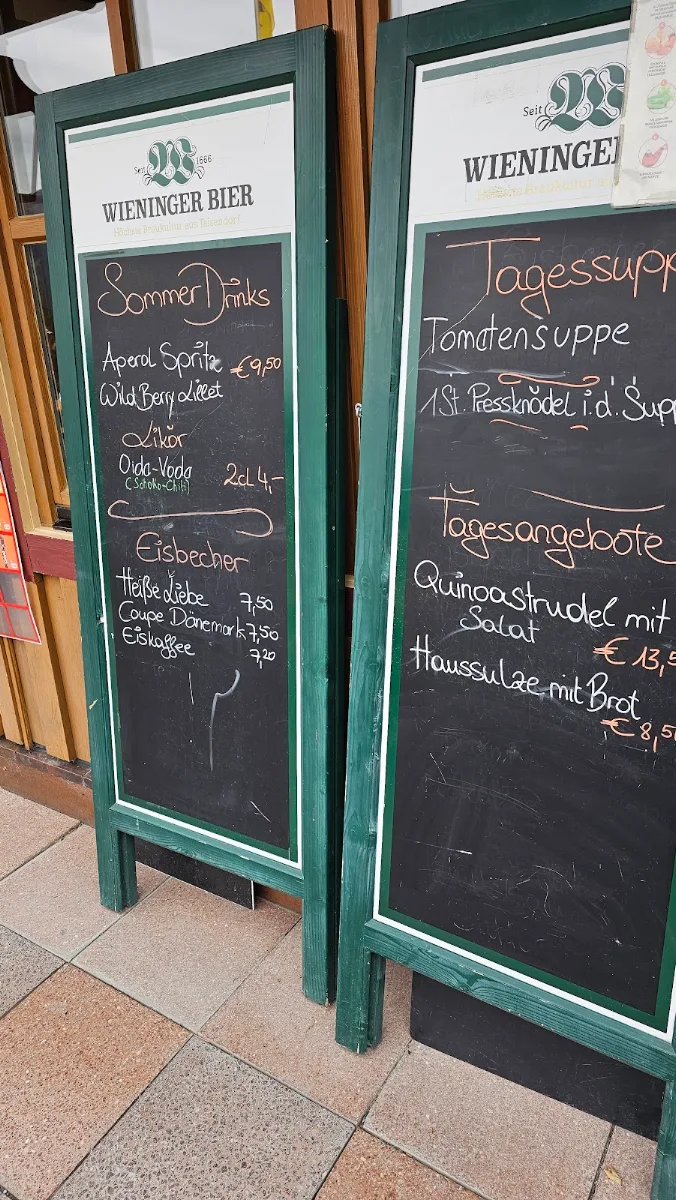 Seit 1666
WIENINGER BIER
Höchste Braukultur aus Teisendorf
Sommer Drinks
Aperol Spritz €9,50
Wild Berry Lillet
Likör
Oida-Voda 2cl 4,-
(Schoko-Chili)
Eisbecher
Heiße Liebe 7,50
Coupe Dänemark 7,50
Eiskaffee 7,20
Seit
WIENINGE
Höchste Braukultur au
Tagessupp
Tomatensuppe
1 St. Pressknödel i.d. Supp
Tagesangebote
Quinoastrudel mit
Salat
€ 13,5
Haussulze mit Brot
€ 8,50